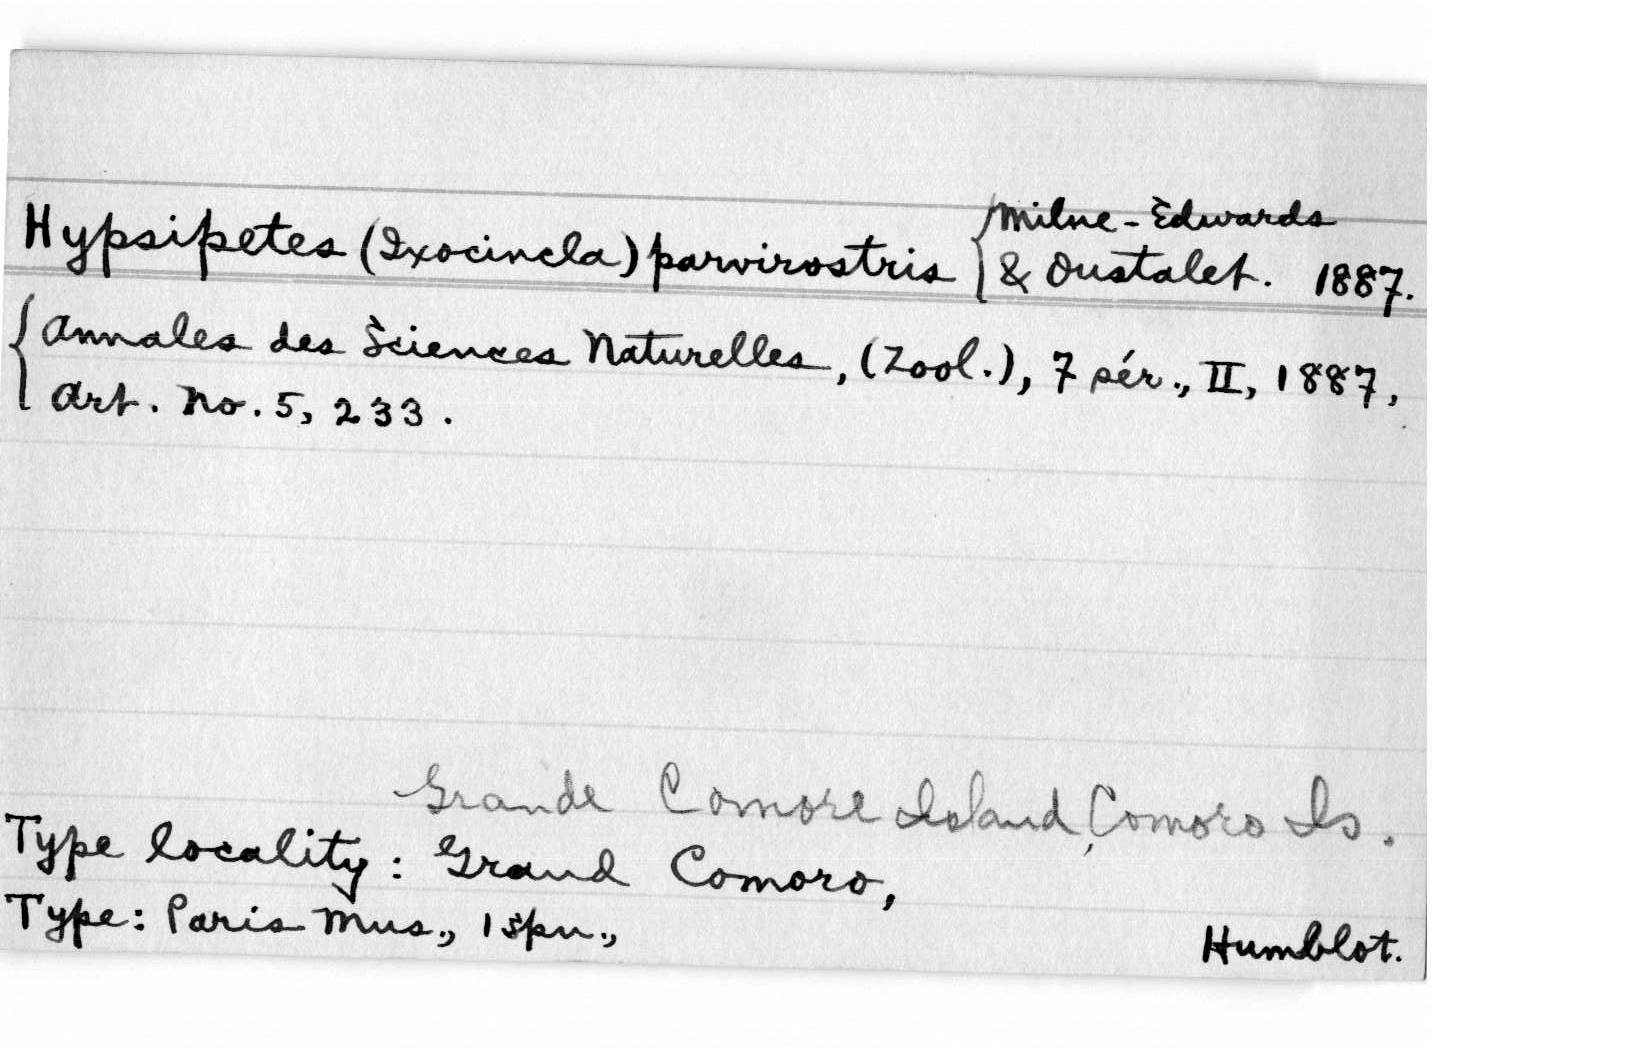 Hypsipetes (Ixocincla) parvirostris { Milne-Edwards
& Oustalet. 1887.
{ Annales des Sciences Naturelles, (Zool.), 7 sér., II, 1887,
Art. No. 5, 233.
Grande Comore Island, Comoro Is.
Type locality: Grand Comoro,
Type: Paris Mus., 1 spn.,
Humblot.